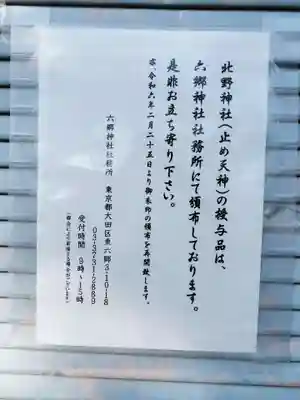 北野神社(止め天神)の授与品は、
六郷神社社務所にて頒布しております。
是非お立ち寄り下さい。
尚、令和六年二月二十五日より御朱印の頒布を再開致します。
六郷神社社務所 東京都大田区東六郷3-10-18
03-3731-2889
受付時間 9時~15時